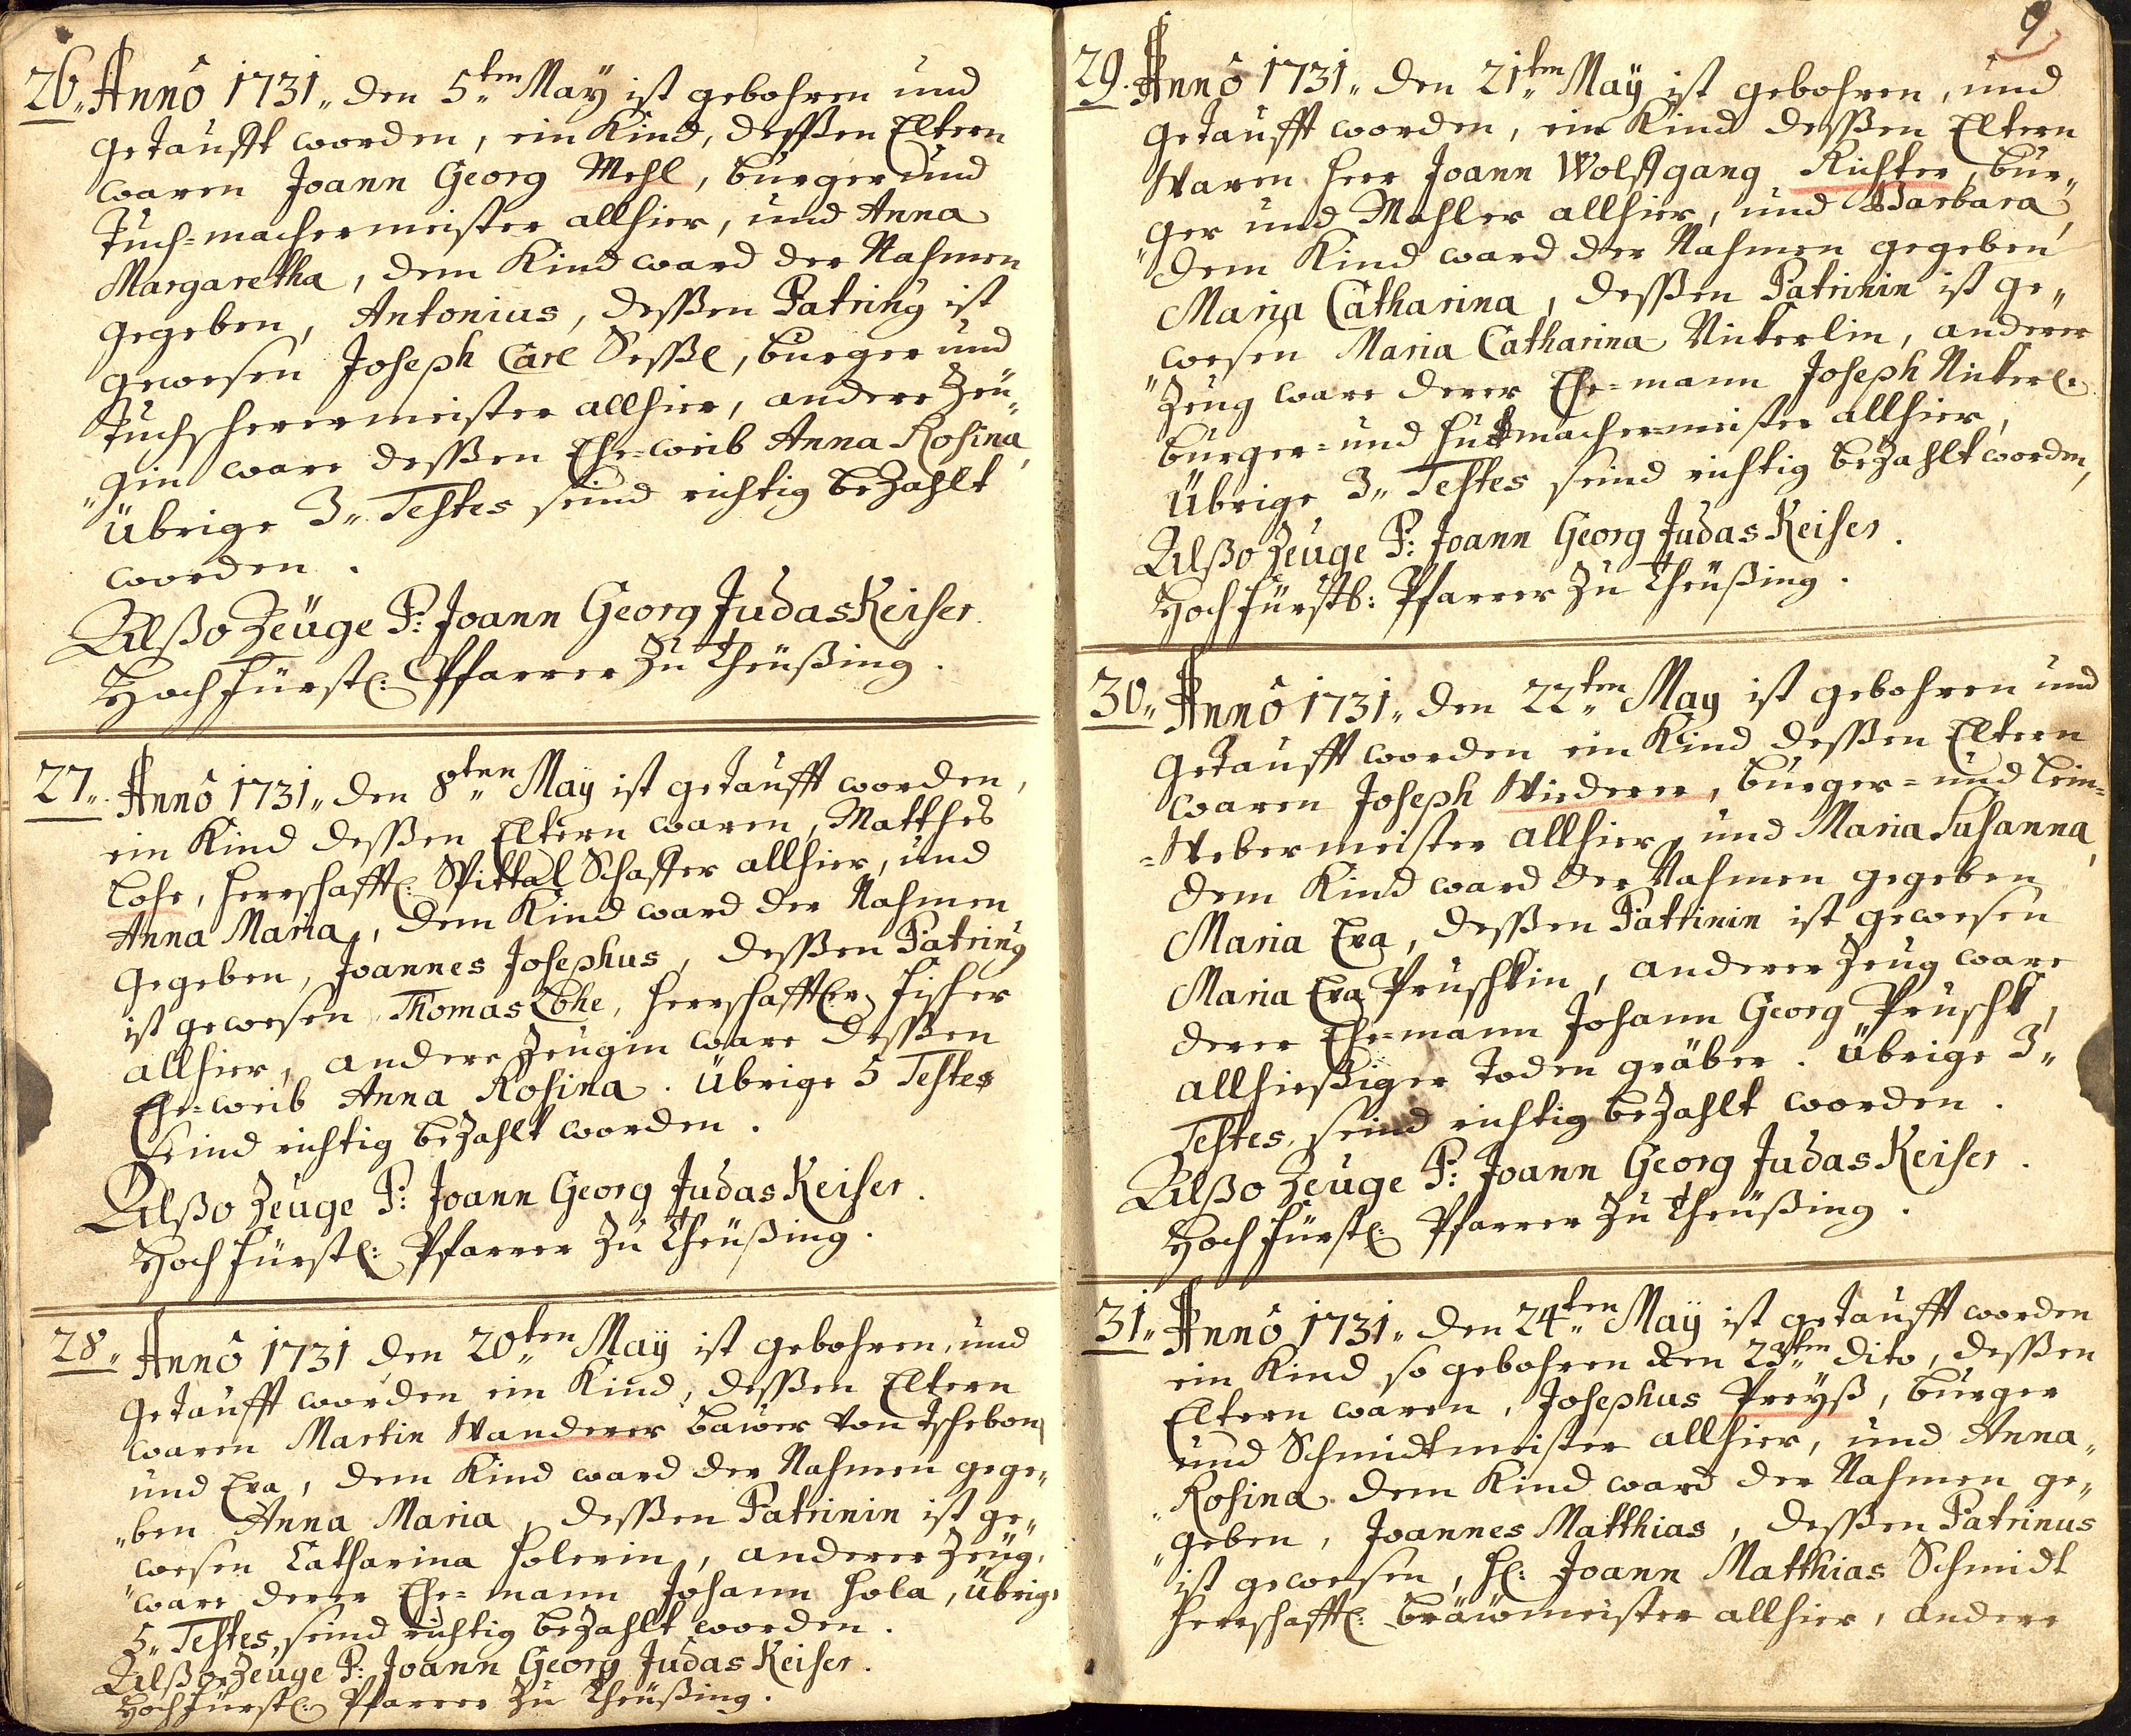 26„ Anno 1731„ den 5„ten May ist gebohren und
getaufft worden, ein Kind, deßßen Eltern
waren Joann Georg Mehl, bürger und
Tuch=machermeister allhier, und Anna
Margaretha, dem Kind ward der Nahmen
gegeben, Antonius, deßßen Patring ist
gewesen Joseph Carl Seßße, bürger und
Tuchscherermeister allhier, andere Zeu„
„gin ware deßßen Ehe=weib Anna Rosina,
Übrige 3„ Testes seind richtig bezahlt
worden.
Alßo Zeüge P: Joann Georg Judas Keiser.
Hoch Fürstl: Pfarrer zu Theüßing.
27„. Anno 1731„ den 8„ten May ist getaufft worden,
ein Kind deßßen Eltern waren, Matthes
Lohe, herrschafftl: Spittal Schaffer allhier, und
Anna Maria, dem Kind ward der Nahmen
gegeben, Joannes Josephus, deßßen Patring
ist gewesen Thomas Lohe, herrschafftl:r Fischer
allhier, andere Zeugin ware deßßen
Ehe=weib Anna Rosina. Übrige 5 Testes
seind richtig bezahlt worden.
Alßo Zeuge P: Joann Georg Judas Keiser.
Hoch Fürstl: Pfarrer zu Theüßing.
28„ Anno 1731 den 20„ten Maÿ ist gebohren, und
getaufft worden ein Kind, deßßen Eltern
waren Martin Wanderer bawer von Tschebon
und Eva, dem Kind ward der Nahmen gege„
„ben Anna Maria, deßßen Patrinin ist ge„
wesen Catharina Holerin, anderer Zeüg,
„ware derer Ehe=mann Johann Hola, übrige
5„ Testes, seind richtig bezahlt worden.
Alßo Zeüge P: Joann Georg Judas Keiser.
Hoch Fürstl: Pfarrer zu Theüßing.
9
29. Anno 1731„ den 21„ten Maÿ ist gebohren, und
getaufft worden, ein Kind deßßen Eltern
Waren Herr Joann Wolffgang Richter, bür„
„ger und Mahler allhier, und Barbara,
dem Kind ward der Nahmen gegeben
Maria Catharina, deßßen Patrinin ist ge„
„wesen Maria Catharina Nickerlin, anderer
Zeug ware derer Ehe=mann Joseph Nickerl:
bürger=und Hudtmachermeister allhier,
Übrige 3„ Testes seind richtig bezahlt worden,
Alßo Zeuge P: Joann Georg Judas Keiser.
Hoch Fürstl: Pfarrer zu Theüßing.
30„ Anno 1731„ den 22„ten May ist gebohren und
getaufft worden ein Kind deßßen Eltern
waren Joseph Wiederer, bürger=und Lein=
=Webermeister allhier, und Maria Susanna,
dem Kind ward der Nahmen gegeben
Maria Eva, deßßen Patrinin ist gewesen
Maria Eva Pruschkin, anderer Zeug ware
derer Ehe=mann Johann Georg Pruschk,
allhießiger Toden gräber. Übrige 3„
Testes, seind richtig bezahlt worden.
Alßo Zeuge P: Joann Georg Judas Keiser.
Hoch Fürstl: Pfarrer zu Theüßing.
31„ Anno 1731„ den 24„ten Maÿ ist getaufft worden
ein Kind so gebohren den 23„ten dito, deßßen
Eltern waren, Josephus Preyß, bürger
und Schmidtmeister allhier, und Anna„
„Rosina dem Kind ward der Nahmen ge„
„geben, Joannes Matthias, deßßen Patrinus
ist gewesen, H: Joann Matthias Schmidt
herrschafftl: bräwmeister allhier, andere